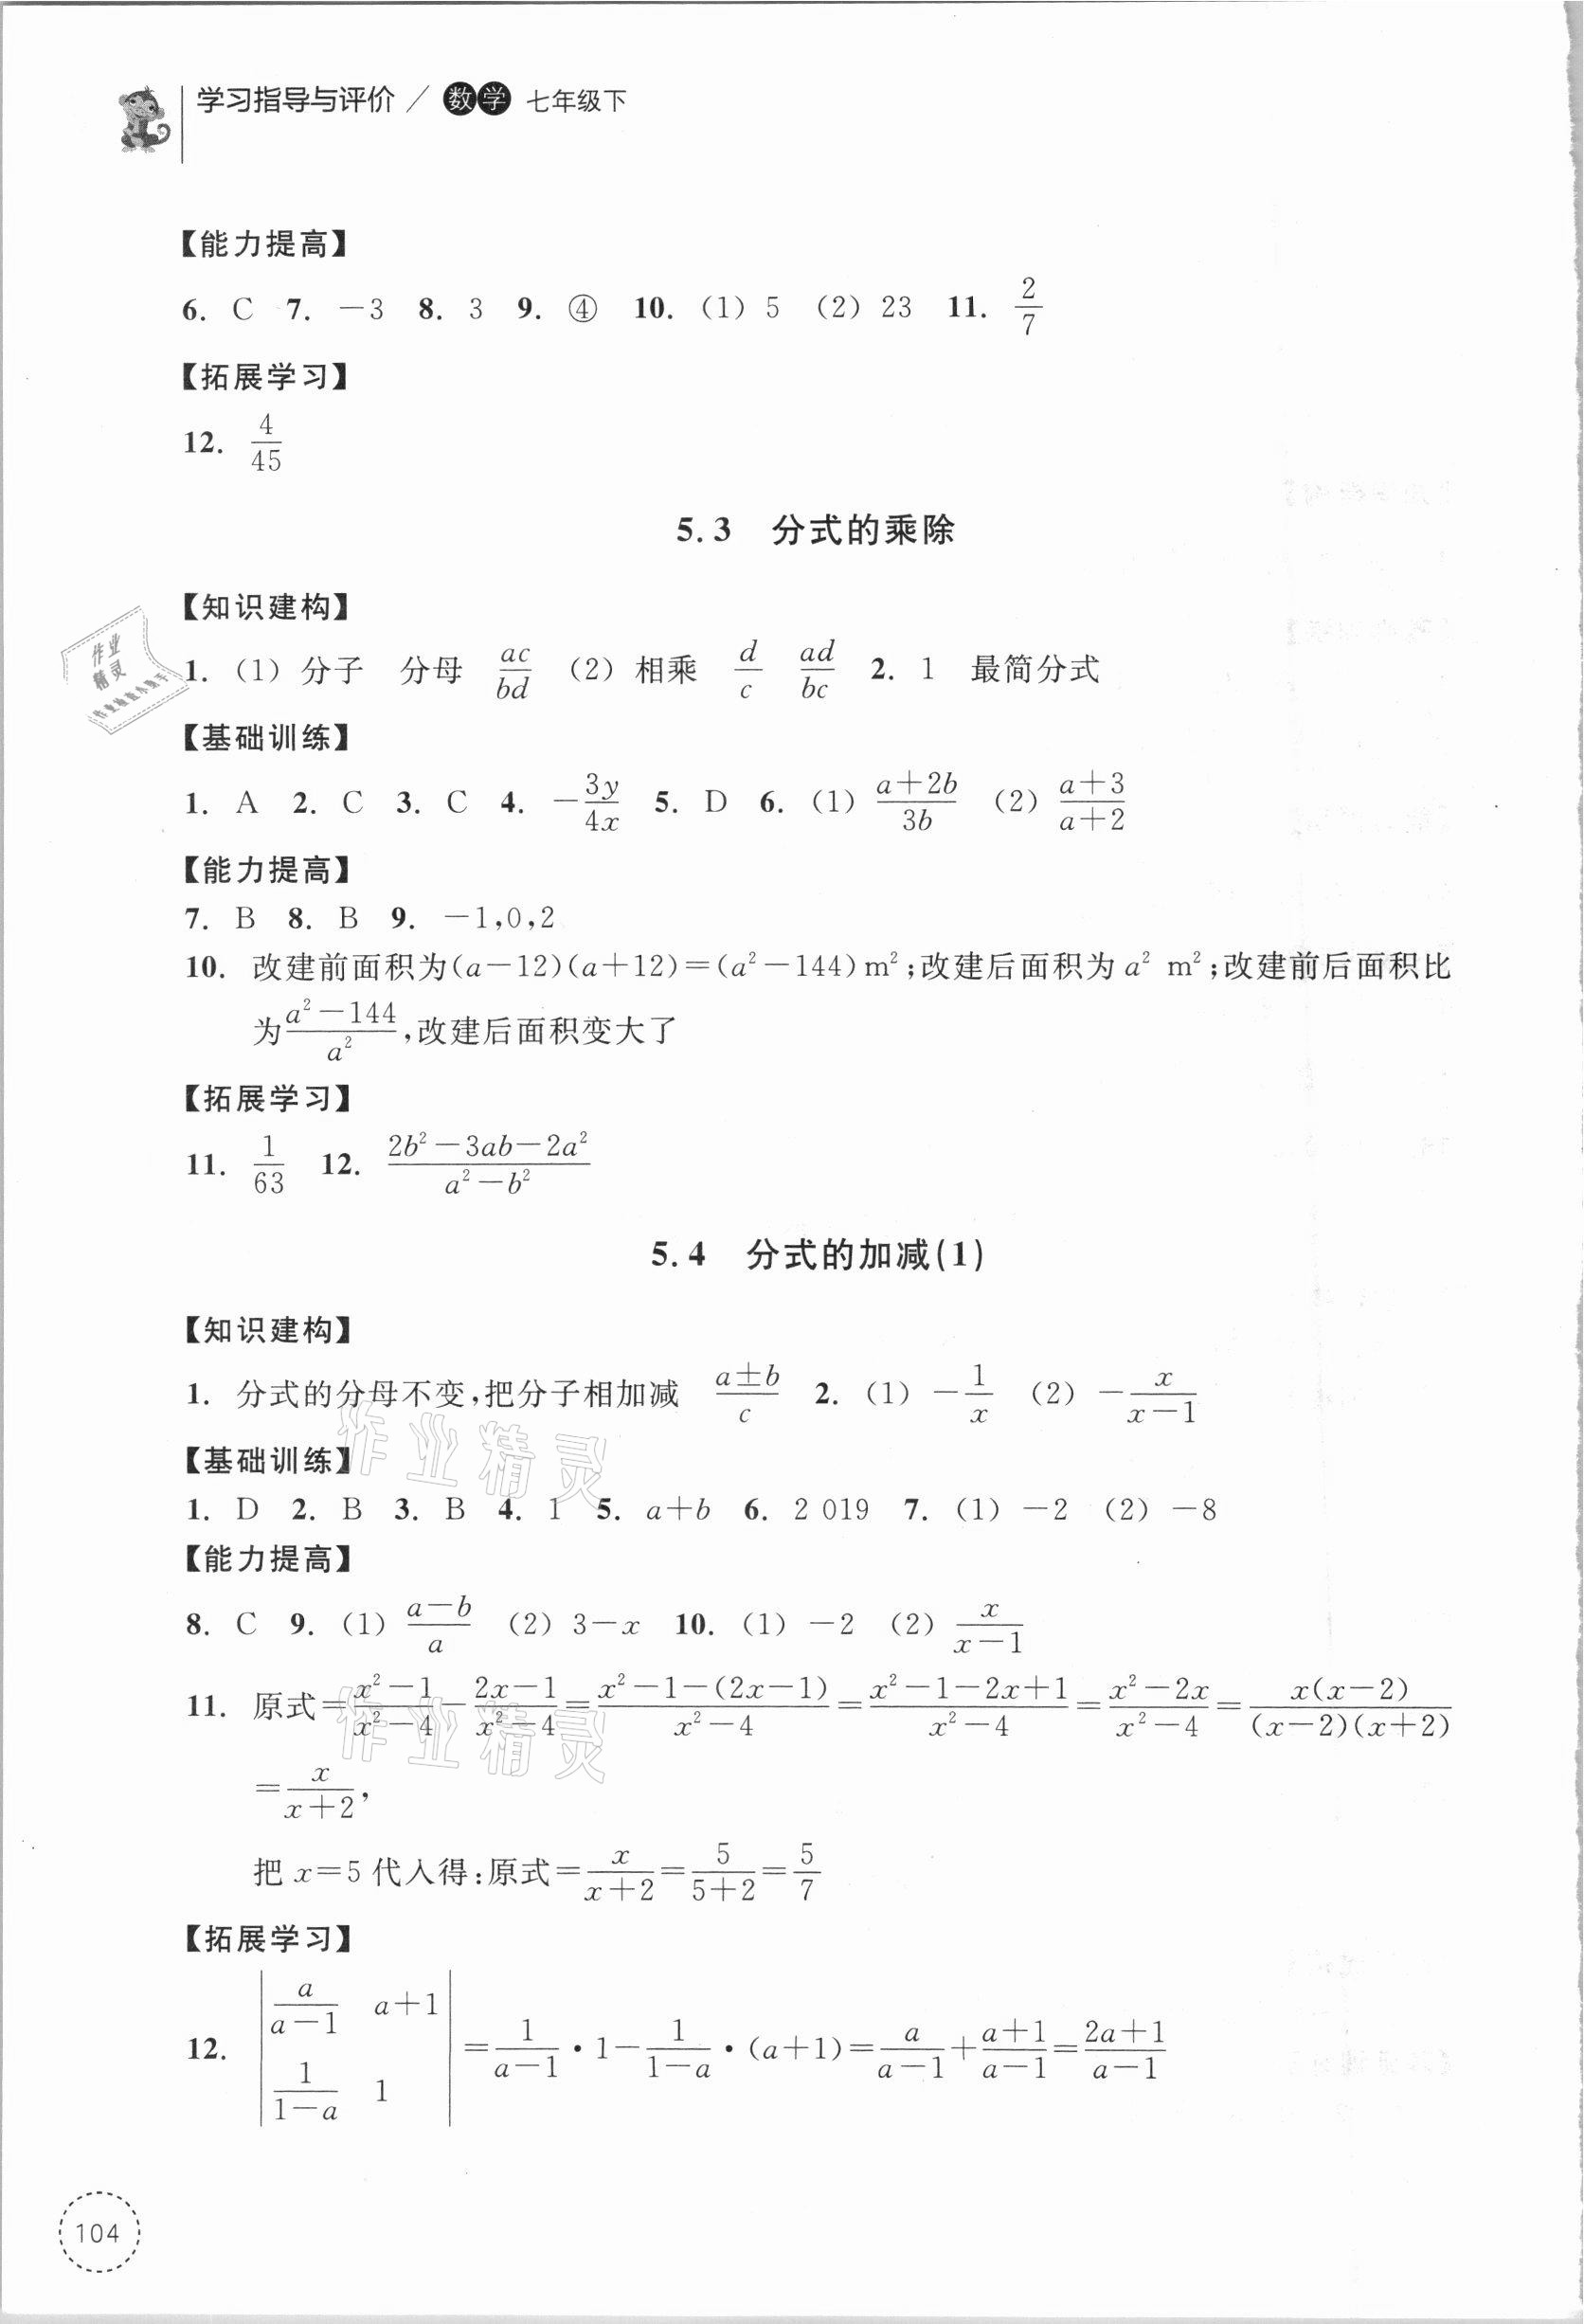 学习指导与评价 / 数学 七年级下
【能力提高】
6. C 7. －3 8. 3 9. ④ 10. (1) 5 (2) 23 11. 2/7
【拓展学习】
12. 4/45
5.3 分式的乘除
【知识建构】
1. (1) 分子 分母 ac/bd (2) 相乘 d/c ad/bc 2. 1 最简分式
【基础训练】
1. A 2. C 3. C 4. －3y/4x 5. D 6. (1) (a＋2b)/3b (2) (a＋3)/(a＋2)
【能力提高】
7. B 8. B 9. －1,0,2
10. 改建前面积为(a－12)(a＋12)＝(a²－144) m²;改建后面积为 a² m²;改建前后面积比
为(a²－144)/a²,改建后面积变大了
【拓展学习】
11. 1/63 12. (2b²－3ab－2a²)/(a²－b²)
5.4 分式的加减(1)
【知识建构】
1. 分式的分母不变,把分子相加减 (a±b)/c 2. (1) －1/x (2) －x/(x－1)
【基础训练】
1. D 2. B 3. B 4. 1 5. a＋b 6. 2 019 7. (1) －2 (2) －8
【能力提高】
8. C 9. (1) (a－b)/a (2) 3－x 10. (1) －2 (2) x/(x－1)
11. 原式＝(x²－1)/(x²－4)－(2x－1)/(x²－4)＝(x²－1－(2x－1))/(x²－4)＝(x²－1－2x＋1)/(x²－4)＝(x²－2x)/(x²－4)＝x(x－2)/((x－2)(x＋2))
＝x/(x＋2),
把 x＝5 代入得:原式＝x/(x＋2)＝5/(5＋2)＝5/7
【拓展学习】
12. |a/(a－1) a＋1; 1/(1－a) 1|＝1/(a－1)·1－1/(1－a)·(a＋1)＝a/(a－1)＋(a＋1)/(a－1)＝(2a＋1)/(a－1)
104
作业精灵
作业精灵
作业精灵